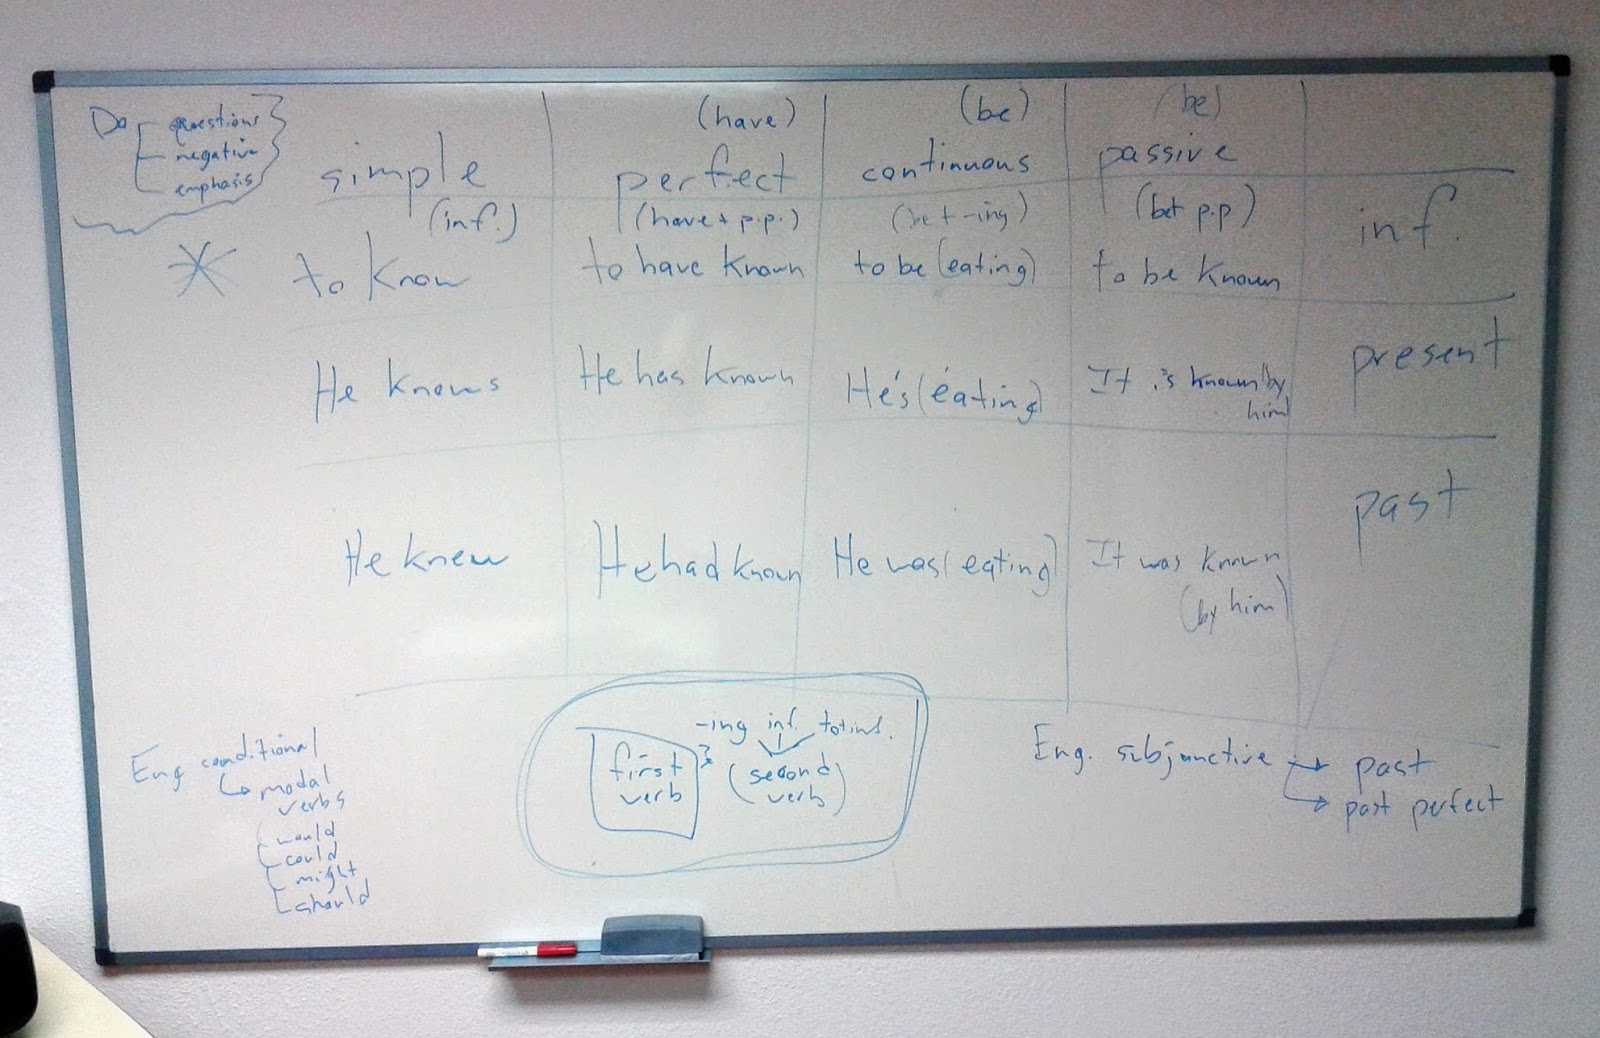 Do questions
negative
emphasis
simple (have) perfect (be) continuous (be) passive
(inf.) (have + p.p.) (be + -ing) (be + p.p) inf.
to know to have known to be (eating) to be known
He knows He has known He's (eating) It is known by
him present
He knew He had known He was (eating) It was known
(by him) past
Eng conditional
modal
verbs
would
could
might
should
-ing inf. to+inf.
first
verb
(second
verb)
Eng. subjunctive → past
→ past perfect